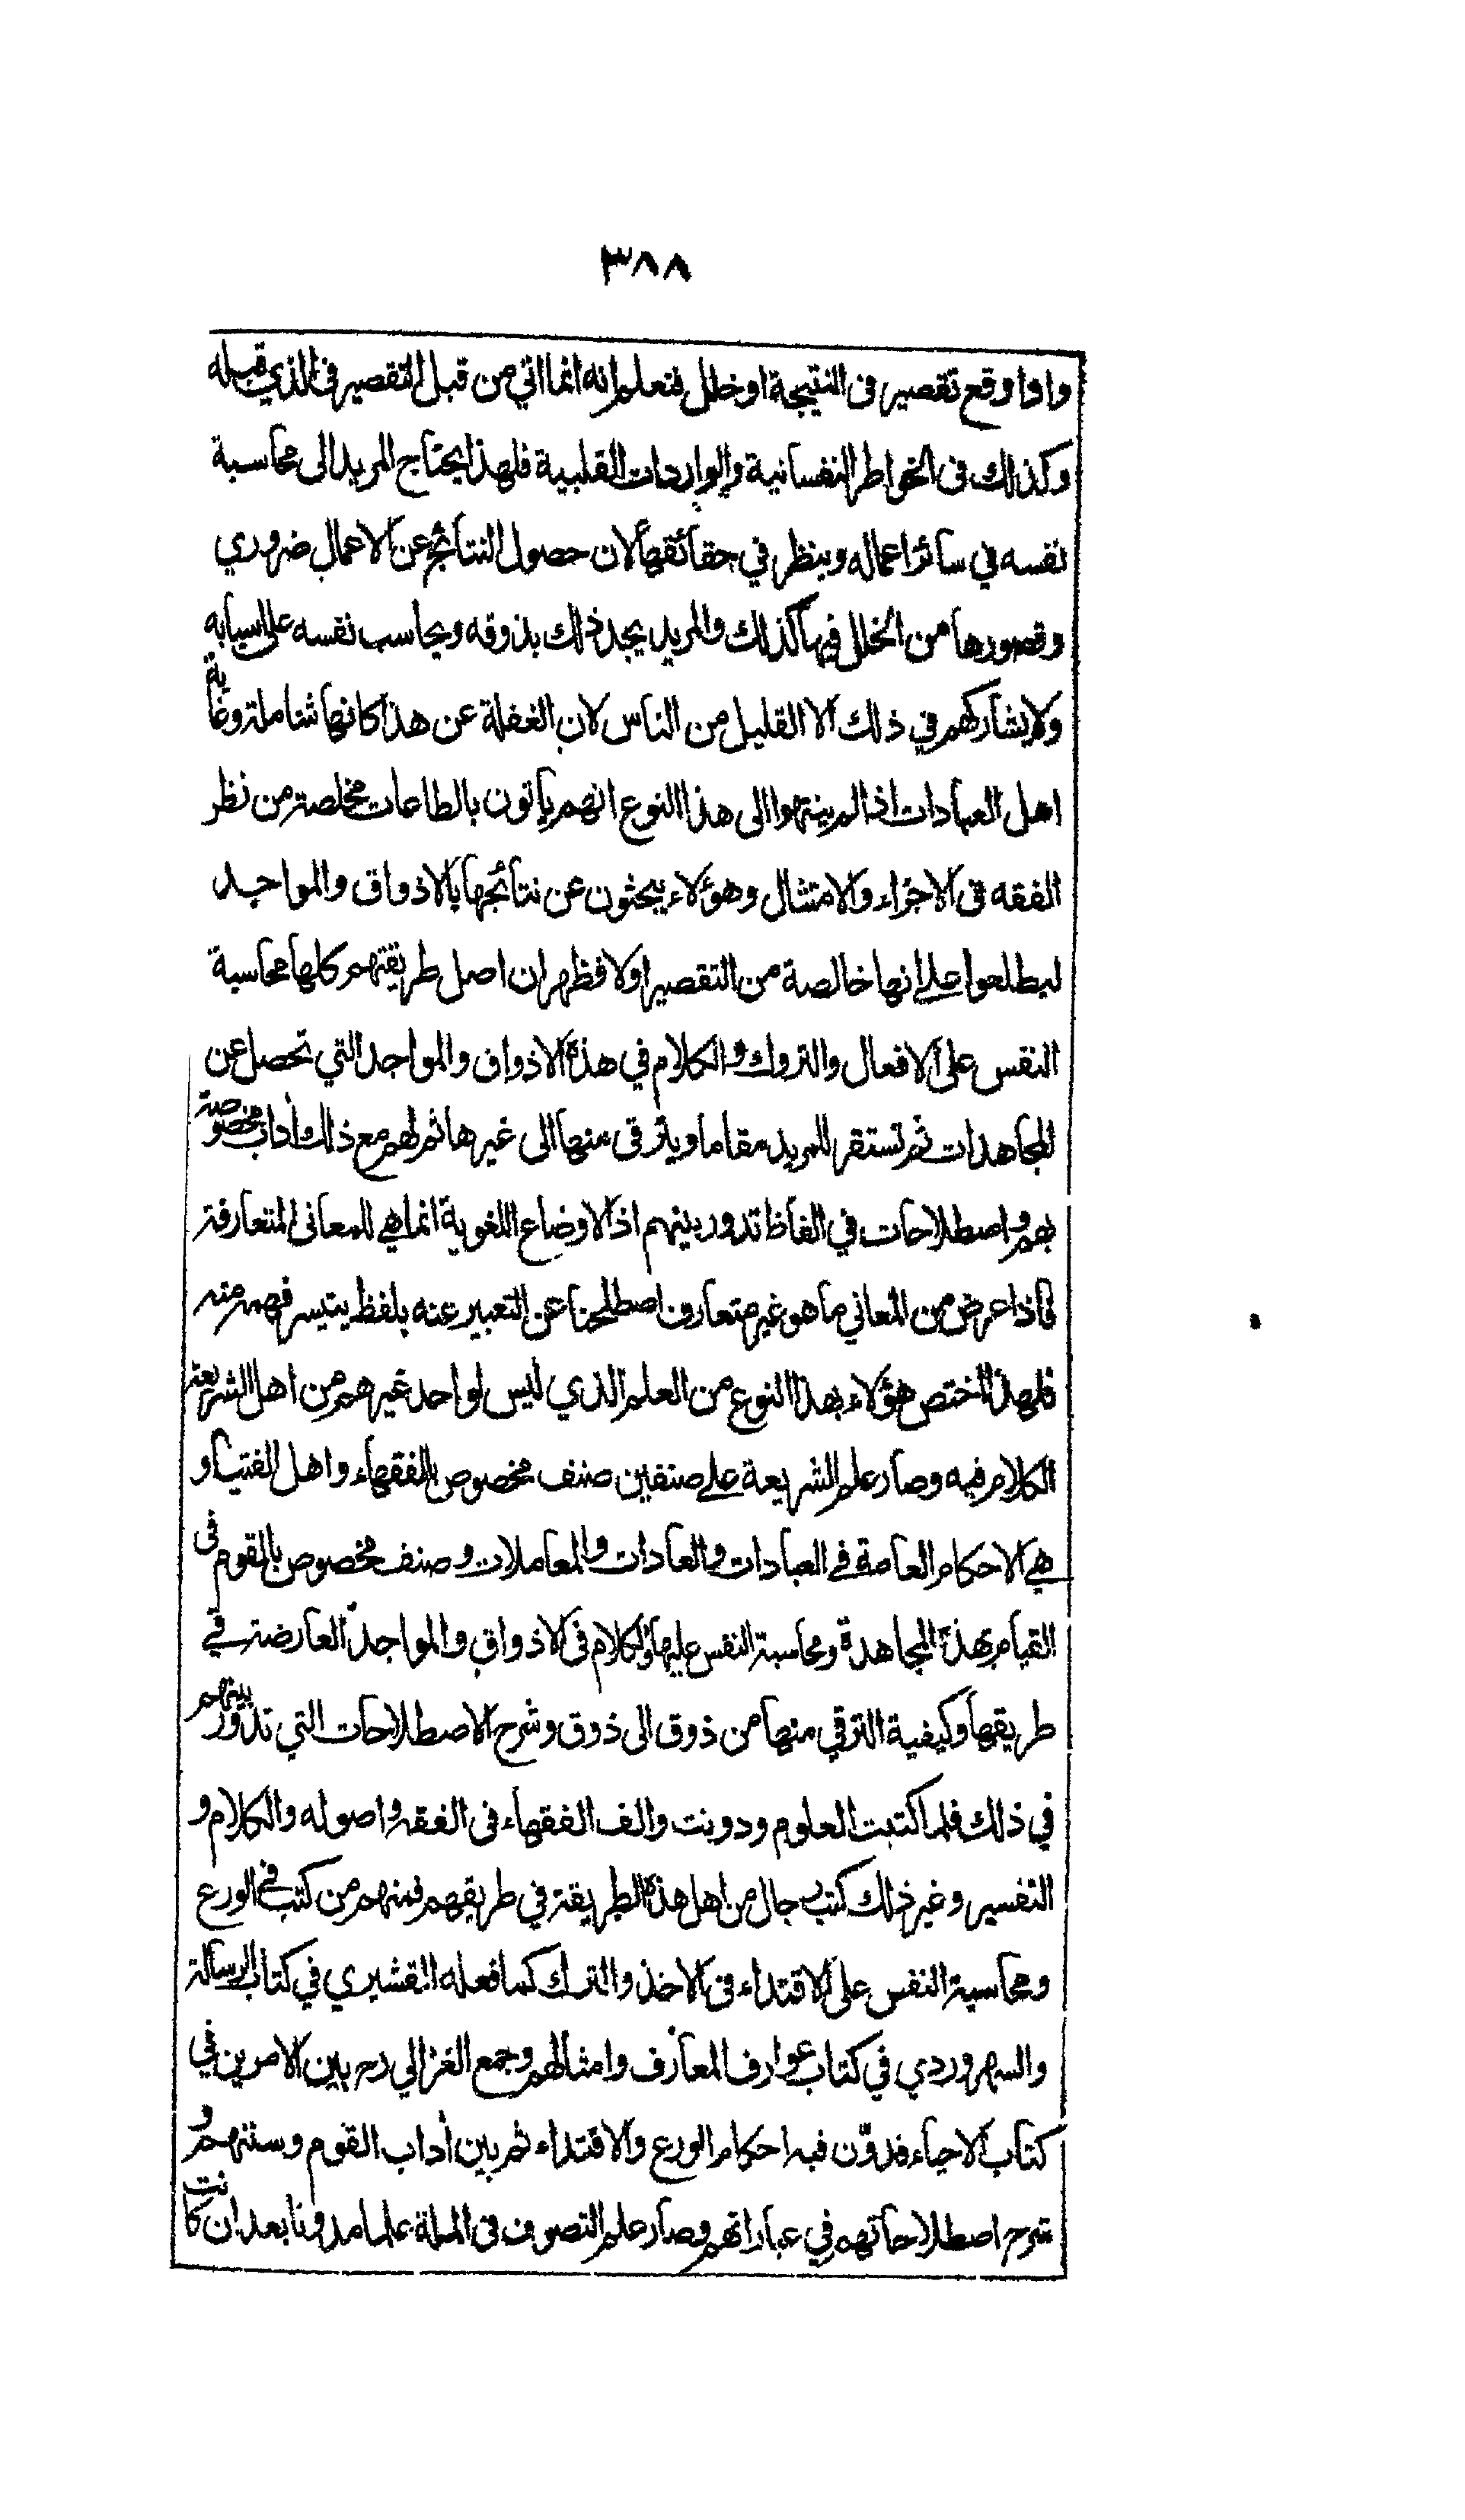 ٣٨٨
واذا وقع تقصير فى النتيجة او خلل فنعلم انه انما اتي من قبل التقصير فى الذي قبله
وكذلك فى الخواطر النفسانية والواردات القلبية فلهذا يحتاج المريد الى محاسبة
نفسه في سائر اعماله وينظر في حقائقها لان حصول النتائج عن الاعمال ضروري
وقصورها من الخلل فيها كذلك والمريد يجد ذلك بذوقه ويحاسب نفسه على اسبابه
ولا يشاركهم في ذلك الا القليل من الناس لان الغفلة عن هذا كانها شاملة وغاية
اهل العبادات اذا لم ينتهوا الى هذا النوع انهم يأتون بالطاعات مخلصة من نظر
الفقه فى الاجزاء والامتثال وهؤلاء يبحثون عن نتائجها بالاذواق والمواجيد
ليطلعوا على انها خالصة من التقصير اولا فظهر ان اصل طريقتهم كلها محاسبة
النفس على الافعال والتروك والكلام في هذه الاذواق والمواجد التي تحصل عن
المجاهدات ثم تستقر للمريد مقاما ويترقى منها الى غيرها ثم لهم مع ذلك اداب مخصوصة
بهم واصطلاحات في الفاظ تدور بينهم اذ الاوضاع اللغوية انما هي للمعانى المتعارفة
فاذا عرض من المعاني ما هو غير متعارف اصطلحنا عن التعبير عنه بلفظ يتيسر فهمه منه
فلهذا اختص هؤلاء بهذا النوع من العلم الذي ليس لواحد غيرهم من اهل الشريعة
الكلام فيه وصار علم الشريعة على صنفين صنف مخصوص بالفقهاء واهل الفتيا و
هي الاحكام العامة في العبادات والعادات والمعاملات وصنف مخصوص بالقوم فى
القيام بهذه المجاهدة ومحاسبة النفس عليها والكلام فى الاذواق والمواجد العارضة في
طريقها وكيفية الترقي منها من ذوق الى ذوق وشرح الاصطلاحات التي تدور بينهم
في ذلك فلما كتبت العلوم ودونت والف الفقهاء فى الفقه واصوله والكلام و
التفسير وغير ذلك كتب رجال من اهل هذه الطريقة في طريقهم فمنهم من كتب في الورع
ومحاسبة النفس على الاقتداء فى الاخذ والترك كما فعله القشيري في كتاب الرسالة
والسهروردي في كتاب عوارف المعارف وامثالهم وجمع الغزالي رح بين الامرين في
كتاب الاحياء فدوّن فيه احكام الورع والاقتداء ثم بين أداب القوم وسننهم و
شرح اصطلاحاتهم في عباراتهم وصار علم التصوف فى الملة علما مدونا بعد ان كانت